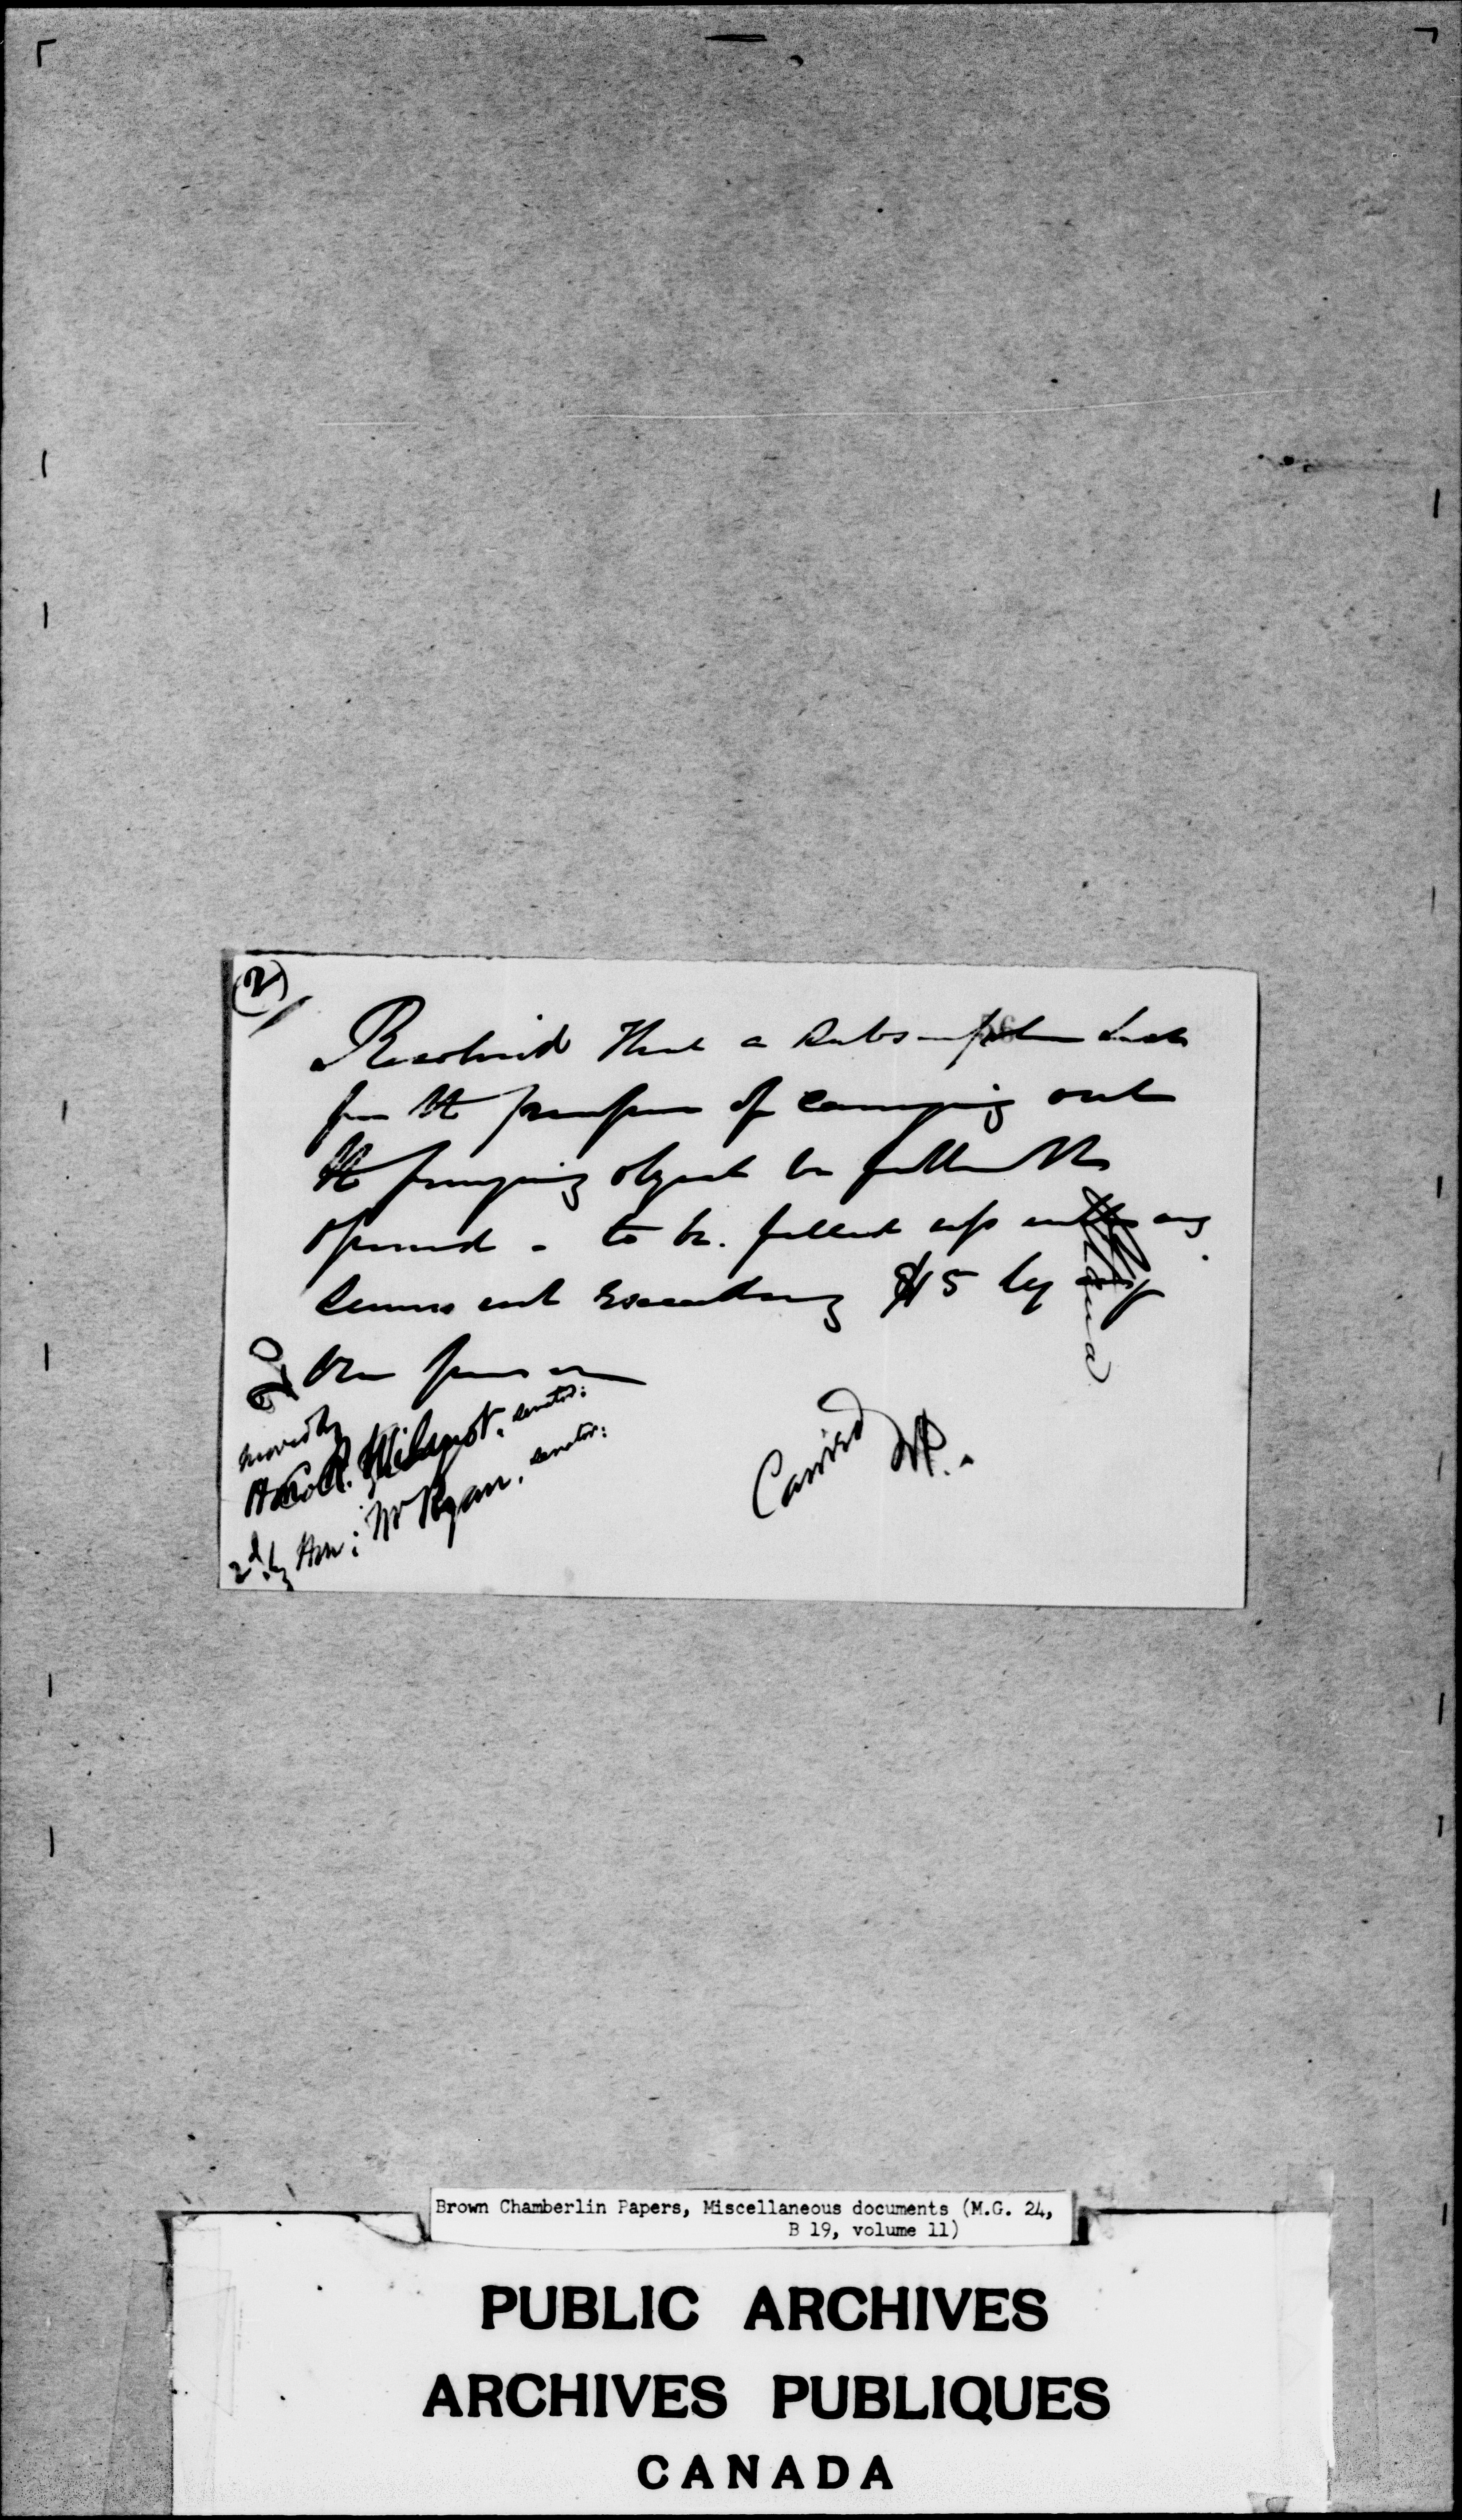 (2)
Resolved That a Subscription List
for the purpose of carrying out
the foregoing object be
opened - to be filled up with any
sums not exceeding $15 by any
One person
moved by
Hon. R. Wilmot, senator:
2d. by Hon: Mr Ryan, senator:
Carried
Brown Chamberlin Papers, Miscellaneous documents (M.G. 24,
B 19, volume 11)
PUBLIC ARCHIVES
ARCHIVES PUBLIQUES
CANADA